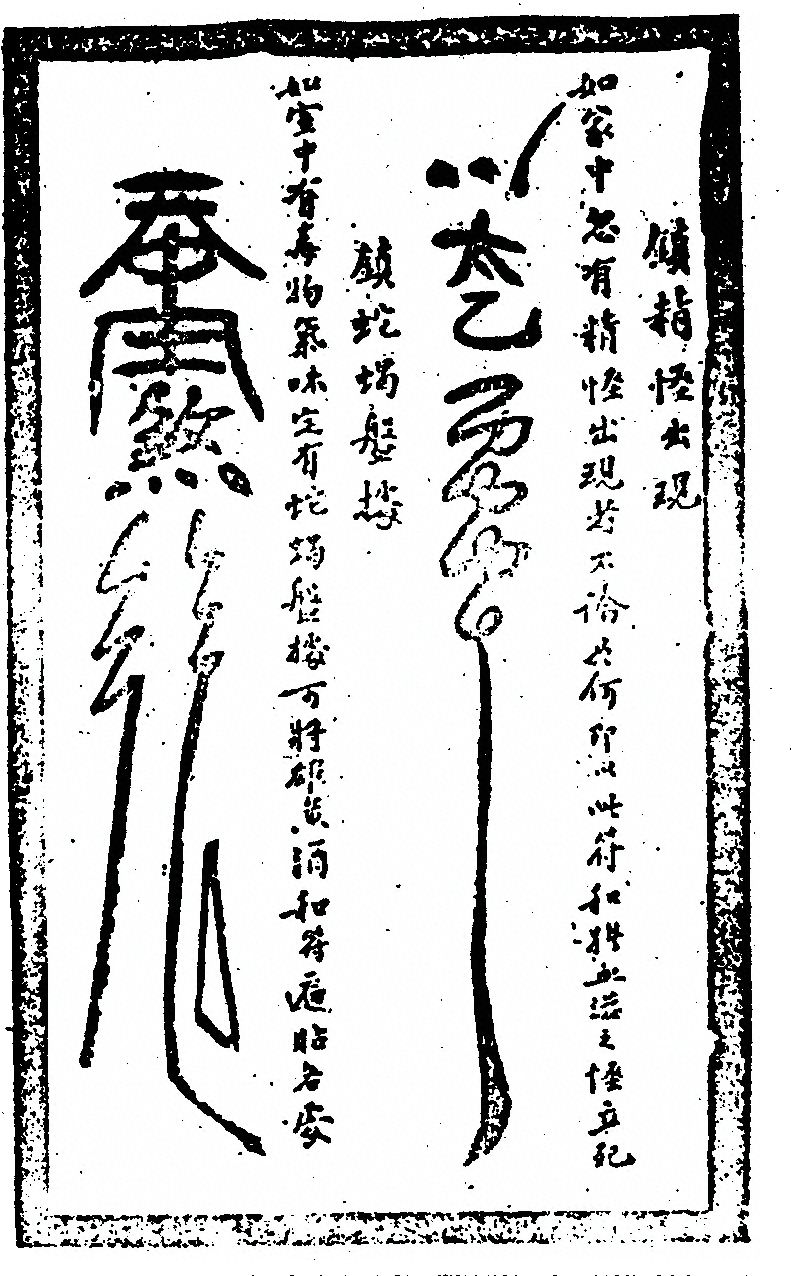 鎮精怪出現
如家中忽有精怪出現若不論何即以此符和雞血之怪立死
太乙
鎮蛇蝎盤據
如室中有毒物氣味定有蛇蝎盤據可將雄黃酒和符遍貼各處
奉煞